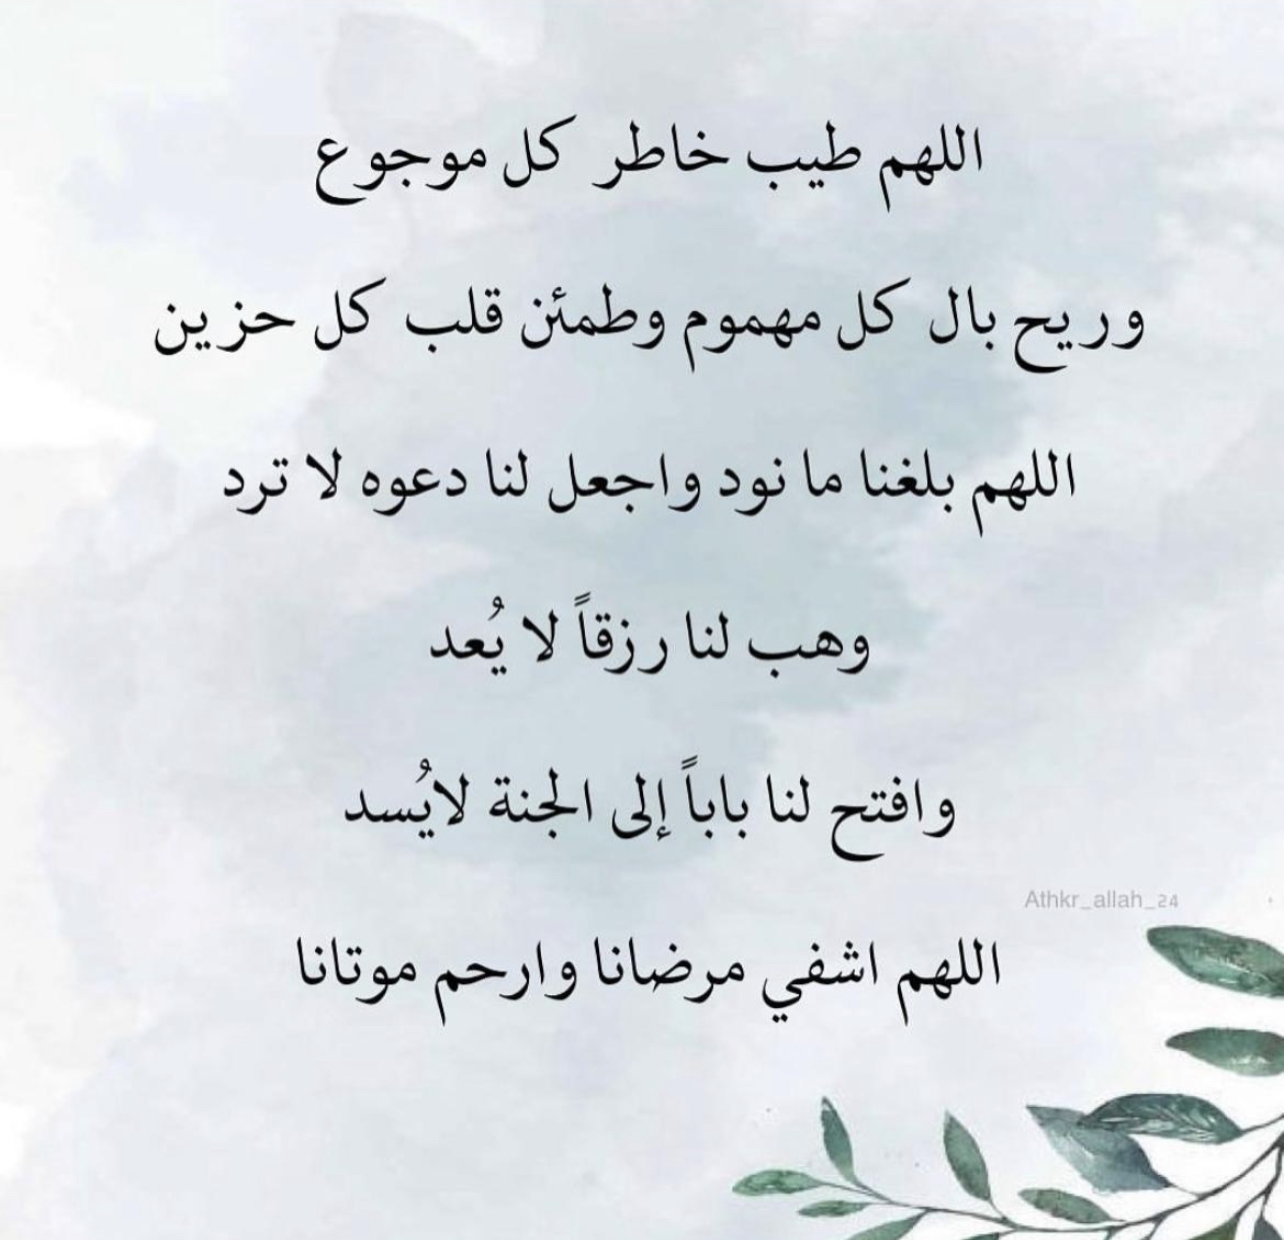 اللهم طيب خاطر كل موجوع
وريح بال كل مهموم وطمئن قلب كل حزين
اللهم بلغنا ما نود واجعل لنا دعوه لا ترد
وهب لنا رزقاً لا يُعد
وافتح لنا باباً إلى الجنة لايُسد
Athkr_allah_24
اللهم اشفي مرضانا وارحم موتانا